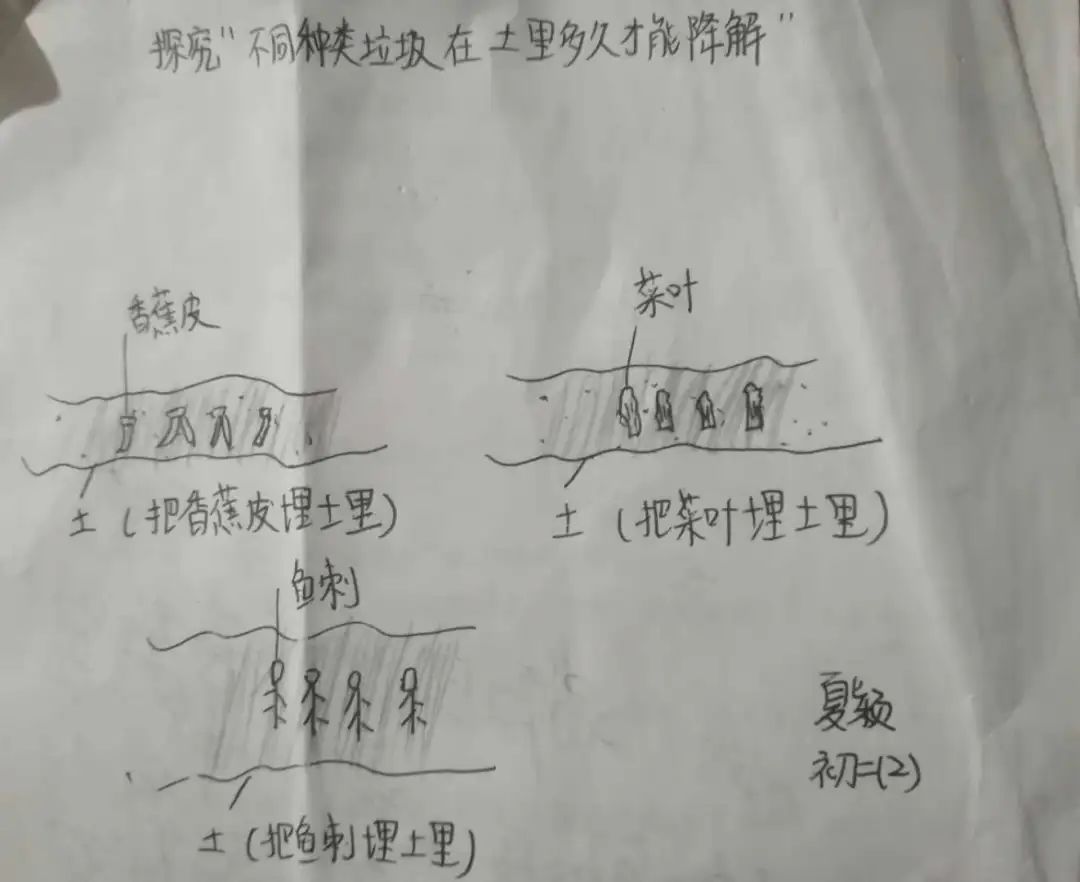 探究"不同种类垃圾在土里多久才能降解"
香蕉皮
菜叶
土(把香蕉皮埋土里)
土(把菜叶埋土里)
鱼刺
土(把鱼刺埋土里)
夏颖
初二(2)